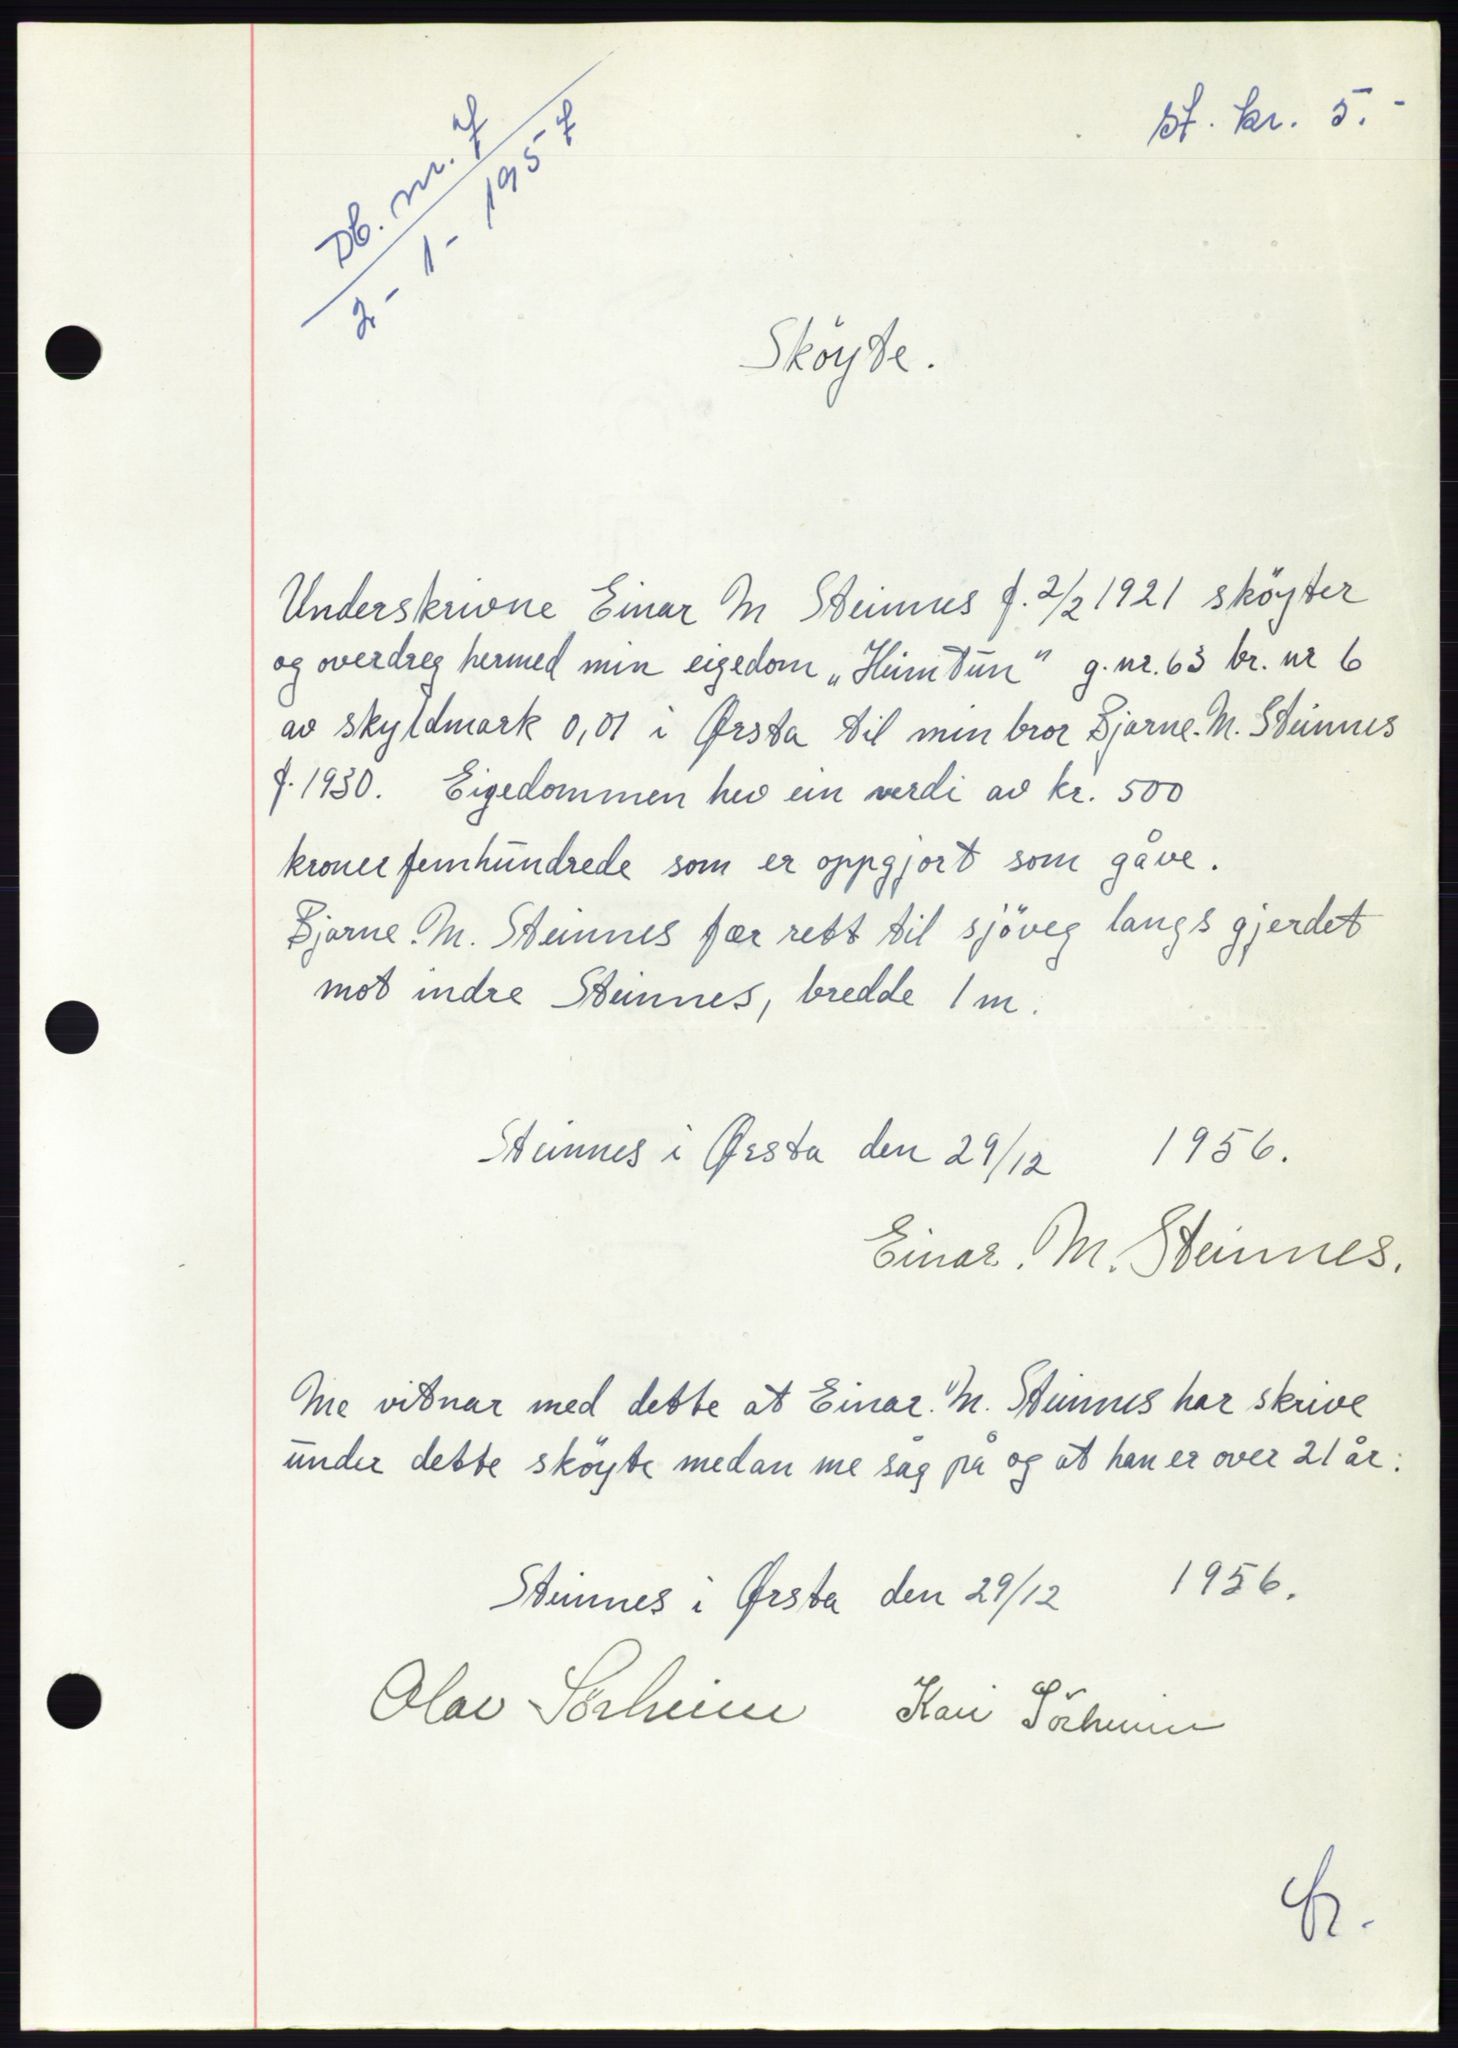 st. kr. 5.-
Db. nr. 7
2 - 1 - 1957
Sköyte.
Underskrivne Einar M Steinnes f. 2/2 1921 sköyter
og overdreg hermed min eigedom „Heimtun" g.nr. 63 br. nr 6
av skyldmark 0,01 i Ørsta til min bror Bjarne. M. Steinnes
f. 1930. Eigedommen hev ein verdi av kr. 500
kroner femhundrede som er oppgjort som gåve.
Bjarne. M. Steinnes fær rett til sjöveg langs gjerdet
mot indre Steinnes, bredde 1 m.
Steinnes i Ørsta den 29/12 1956.
Einar. M. Steinnes.
Me vitnar med dette at Einar. M. Steinnes har skrive
under dette sköyte medan me såg på og at han er over 21 år.
Steinnes i Ørsta den 29/12 1956.
Olav Sörheim Kari Sörheim